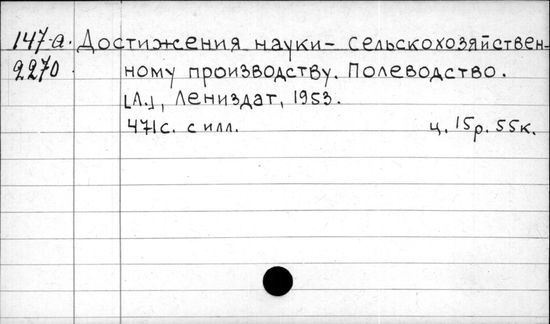 147-а. Достижения науки - сельскохозяйствен-
2270 ному производству. Полеводство.
[Л.], Лениздат, 1953.
471 с. с илл. ц. 15р. 55к.